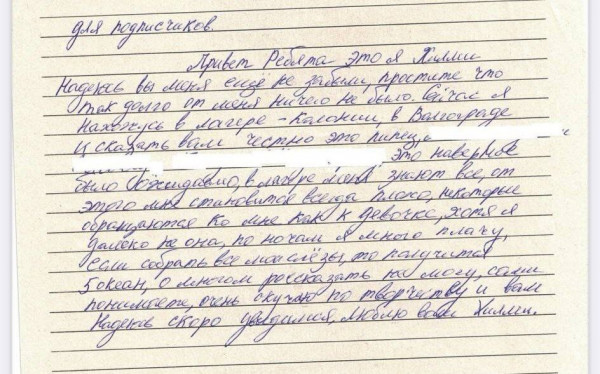 для подписчиков.
Привет Ребята это я Хилми.
Надеюсь вы меня ещё не забыли, простите что
так долго от меня ничего не было. Сейчас я
нахожусь в лагере - Колонии, в Волгограде
и сказать вам честно это пипец,
это наверное
было ожидаемо, в лагере меня знают все, от
этого мне становится всегда плохо, некоторые
обращаются ко мне как к девочке, хотя я
далеко не она, по ночам я много плачу,
если собрать все мои слёзы, то получится
5 океан, о многом рассказать не могу, сами
понимаете, очень скучаю по творчеству и вам
Надеюсь скоро увидимся, люблю вас Хилми.